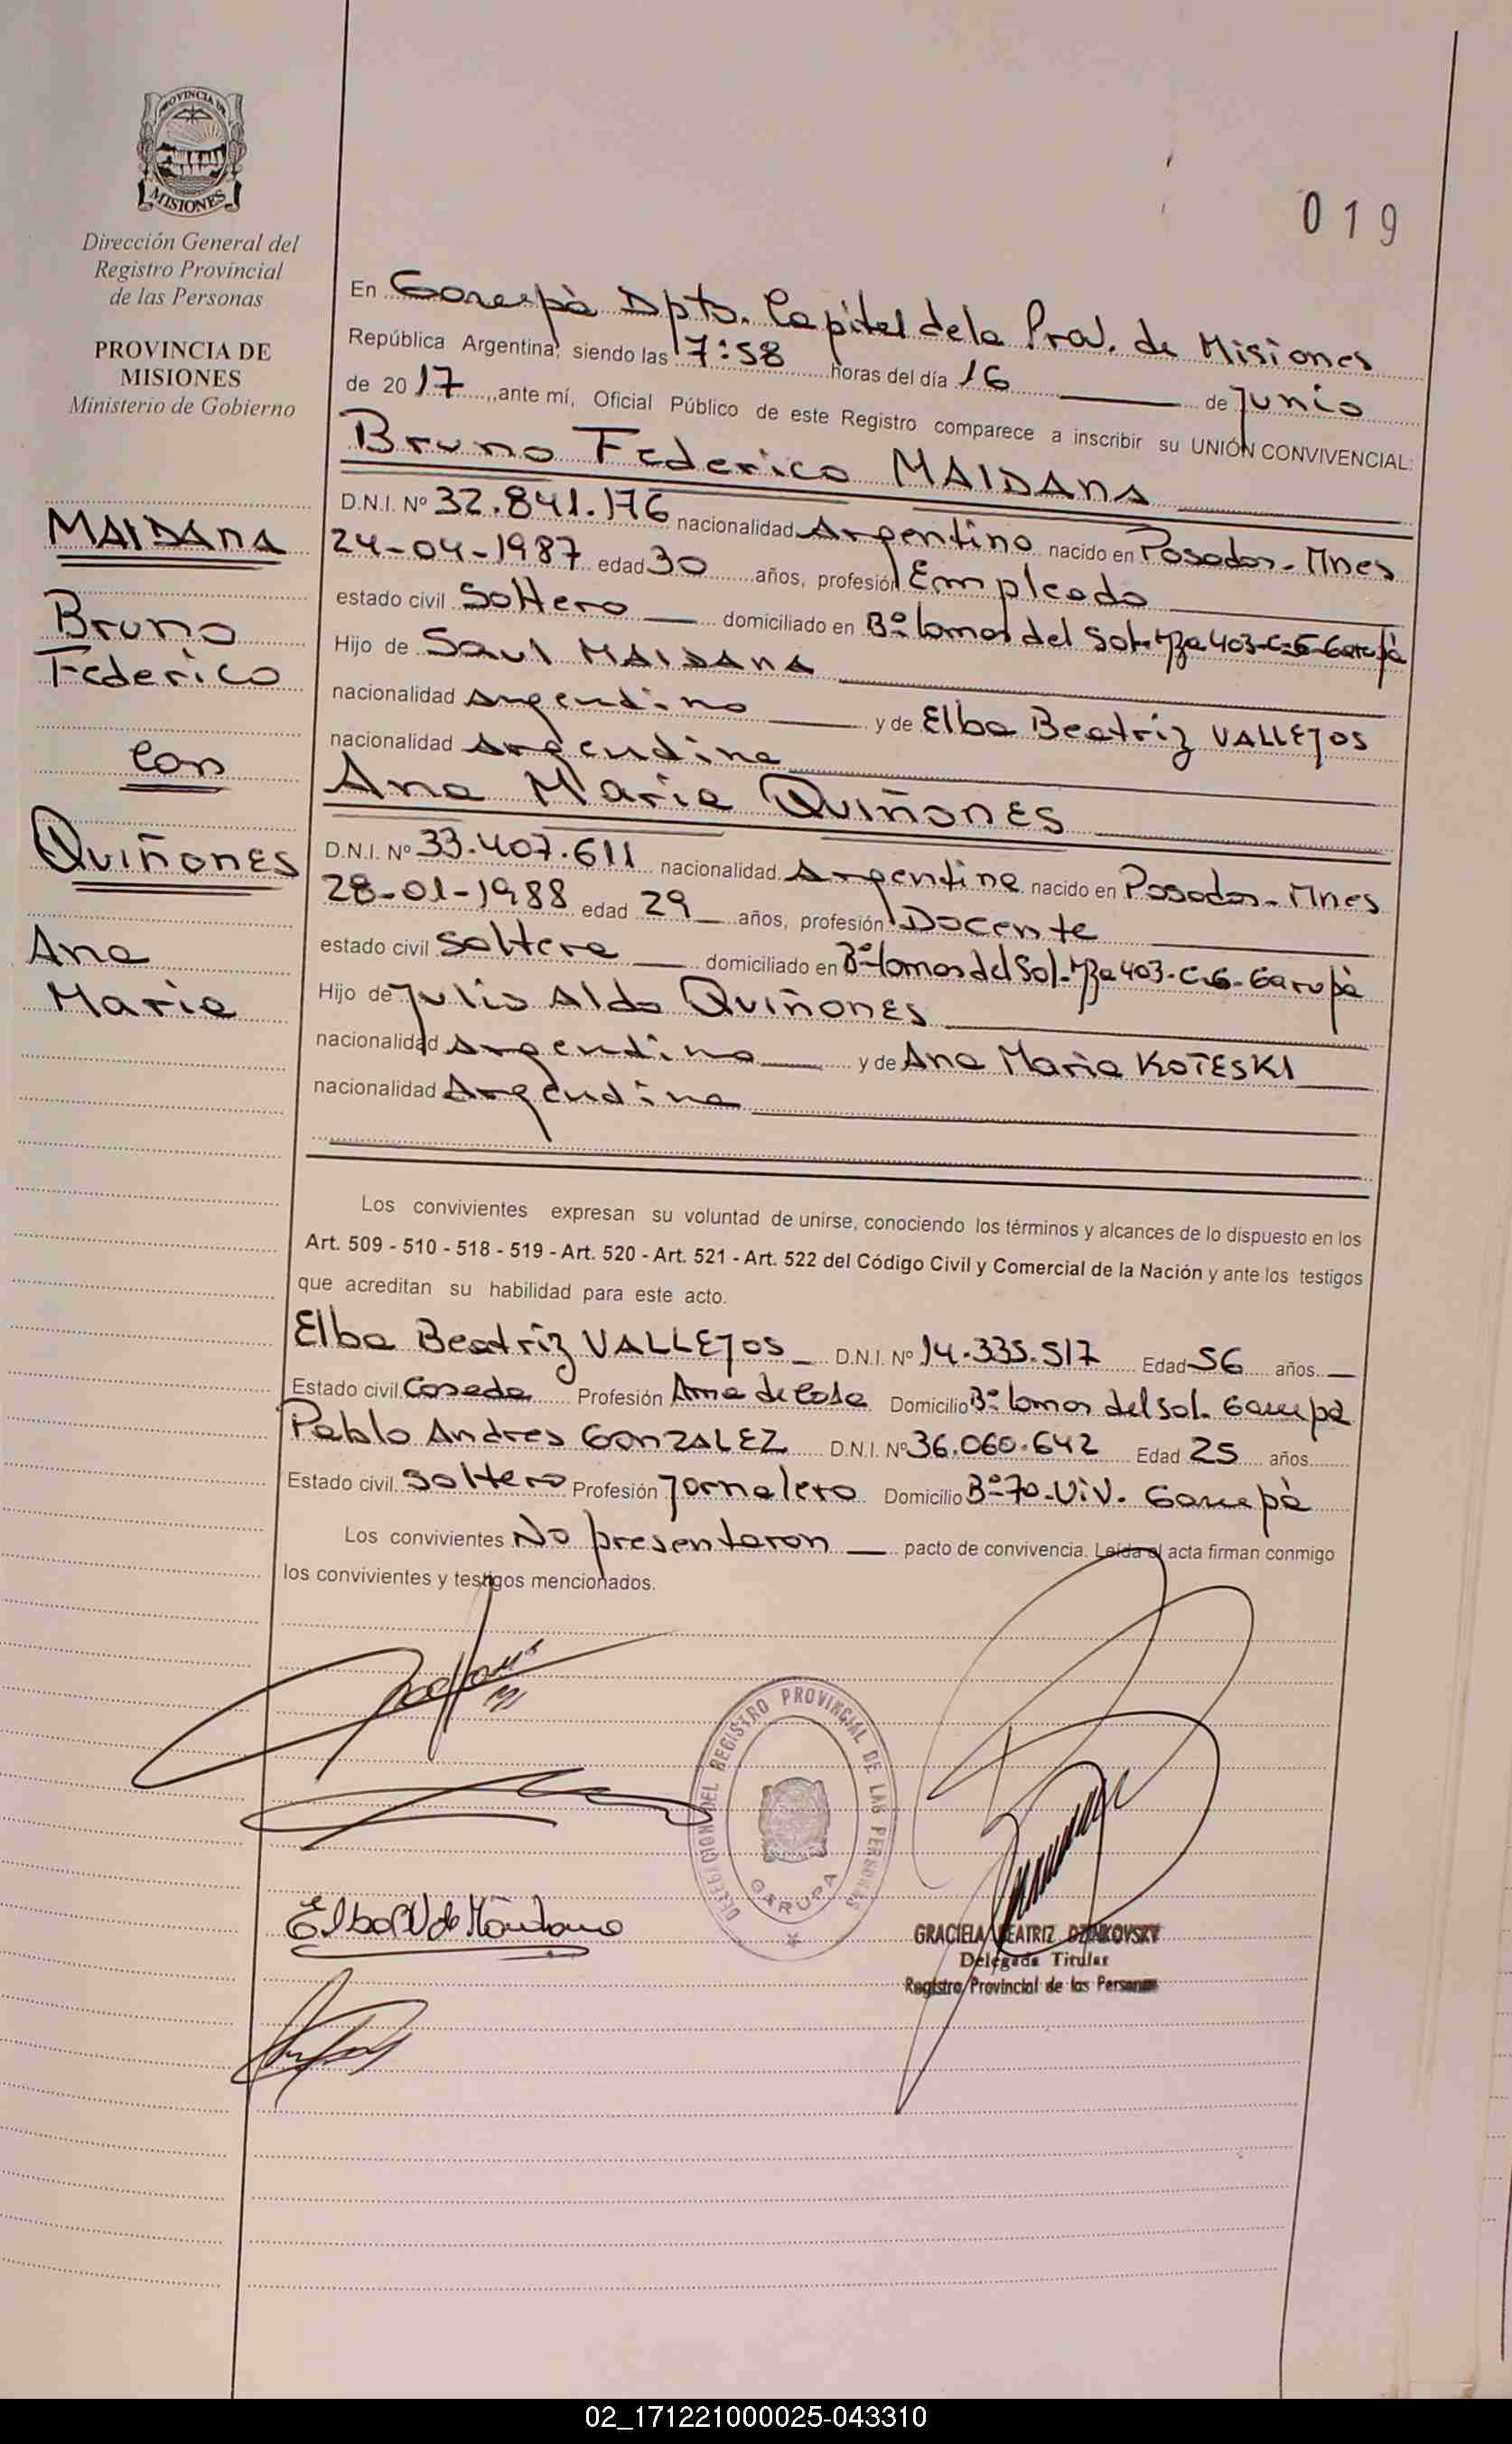 PROVINCIA DE
MISIONES
Dirección General del
Registro Provincial
de las Personas
PROVINCIA DE
MISIONES
Ministerio de Gobierno
MAIDANA
Bruno
Federico
Con
QUIÑONES
Ana
Maria
019
En Garupà Dpto. Capital de la Prov. de Misiones
República Argentina, siendo las 17:58 horas del día 16 de Junio
de 2017, ante mí, Oficial Público de este Registro comparece a inscribir su UNIÓN CONVIVENCIAL:
Bruno Federico MAIDANA
D.N.I. Nº 32.841.176 nacionalidad Argentino nacido en Posadas-Mnes
24-04-1987 edad 30 años, profesión Empleado
estado civil Soltero domiciliado en Bº Lomas del Sol-Mza 403-C-6-Garupà
Hijo de Saul MAIDANA
nacionalidad Argentino y de Elba Beatriz VALLEJOS
nacionalidad Argentina
Ana Maria QUIÑONES
D.N.I. Nº 33.407.611 nacionalidad Argentina nacido en Posadas-Mnes
28-01-1988 edad 29 años, profesión Docente
estado civil Soltera domiciliado en Bº Lomas del Sol-Mza 403-C-6-Garupà
Hijo de Julio Aldo QUIÑONES
nacionalidad Argentino y de Ana Maria KOTESKI
nacionalidad Argentina
Los convivientes expresan su voluntad de unirse, conociendo los términos y alcances de lo dispuesto en los
Art. 509 - 510 - 518 - 519 - Art. 520 - Art. 521 - Art. 522 del Código Civil y Comercial de la Nación y ante los testigos
que acreditan su habilidad para este acto.
Elba Beatriz VALLEJOS D.N.I. Nº 14.335.517 Edad 56 años
Estado civil Casada Profesión Ama de Casa Domicilio Bº Lomas del Sol. Garupà
Pablo Andres GONZALEZ D.N.I. Nº 36.060.642 Edad 25 años
Estado civil Soltero Profesión Jornalero Domicilio Bº-70-Viv. Garupà
Los convivientes No presentaron pacto de convivencia. Leída el acta firman conmigo
los convivientes y testigos mencionados.
DELEGACION DEL REGISTRO PROVINCIAL DE LAS PERSONAS
GARUPA
Elba V de Maidana
GRACIELA BEATRIZ DZIAKOVSKY
Delegada Titular
Registro Provincial de las Personas
02_171221000025-043310